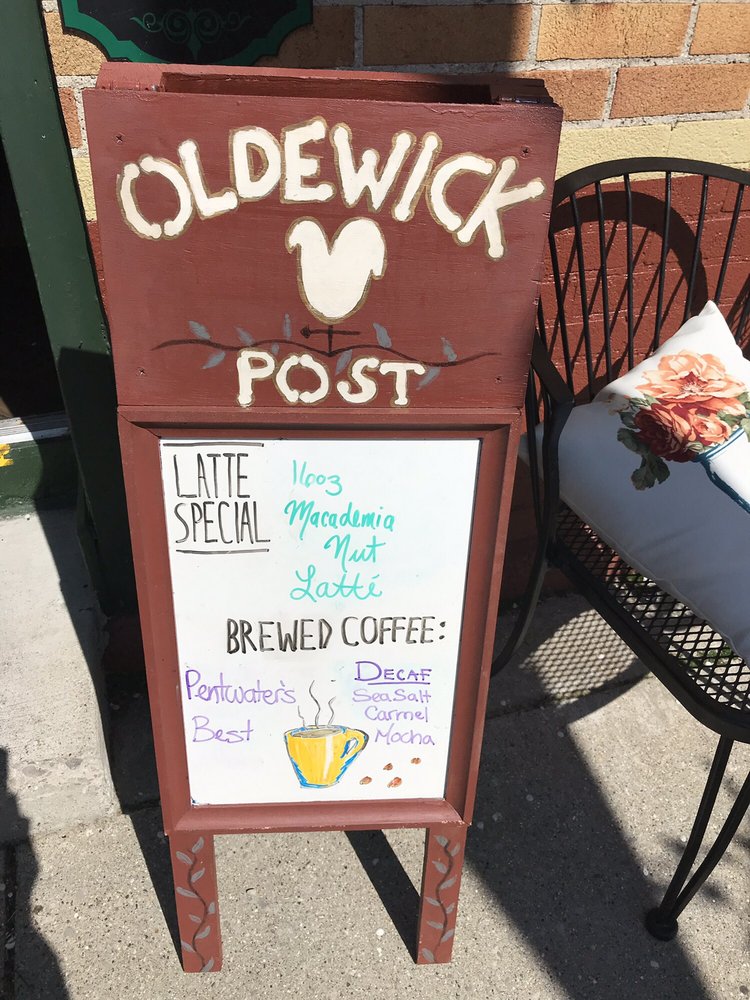 OLDEWICK
POST
LATTE
SPECIAL
16oz
Macademia
Nut
Latté
BREWED COFFEE:
Pentwater's
Best
DECAF
SeaSalt
Carmel
Mocha